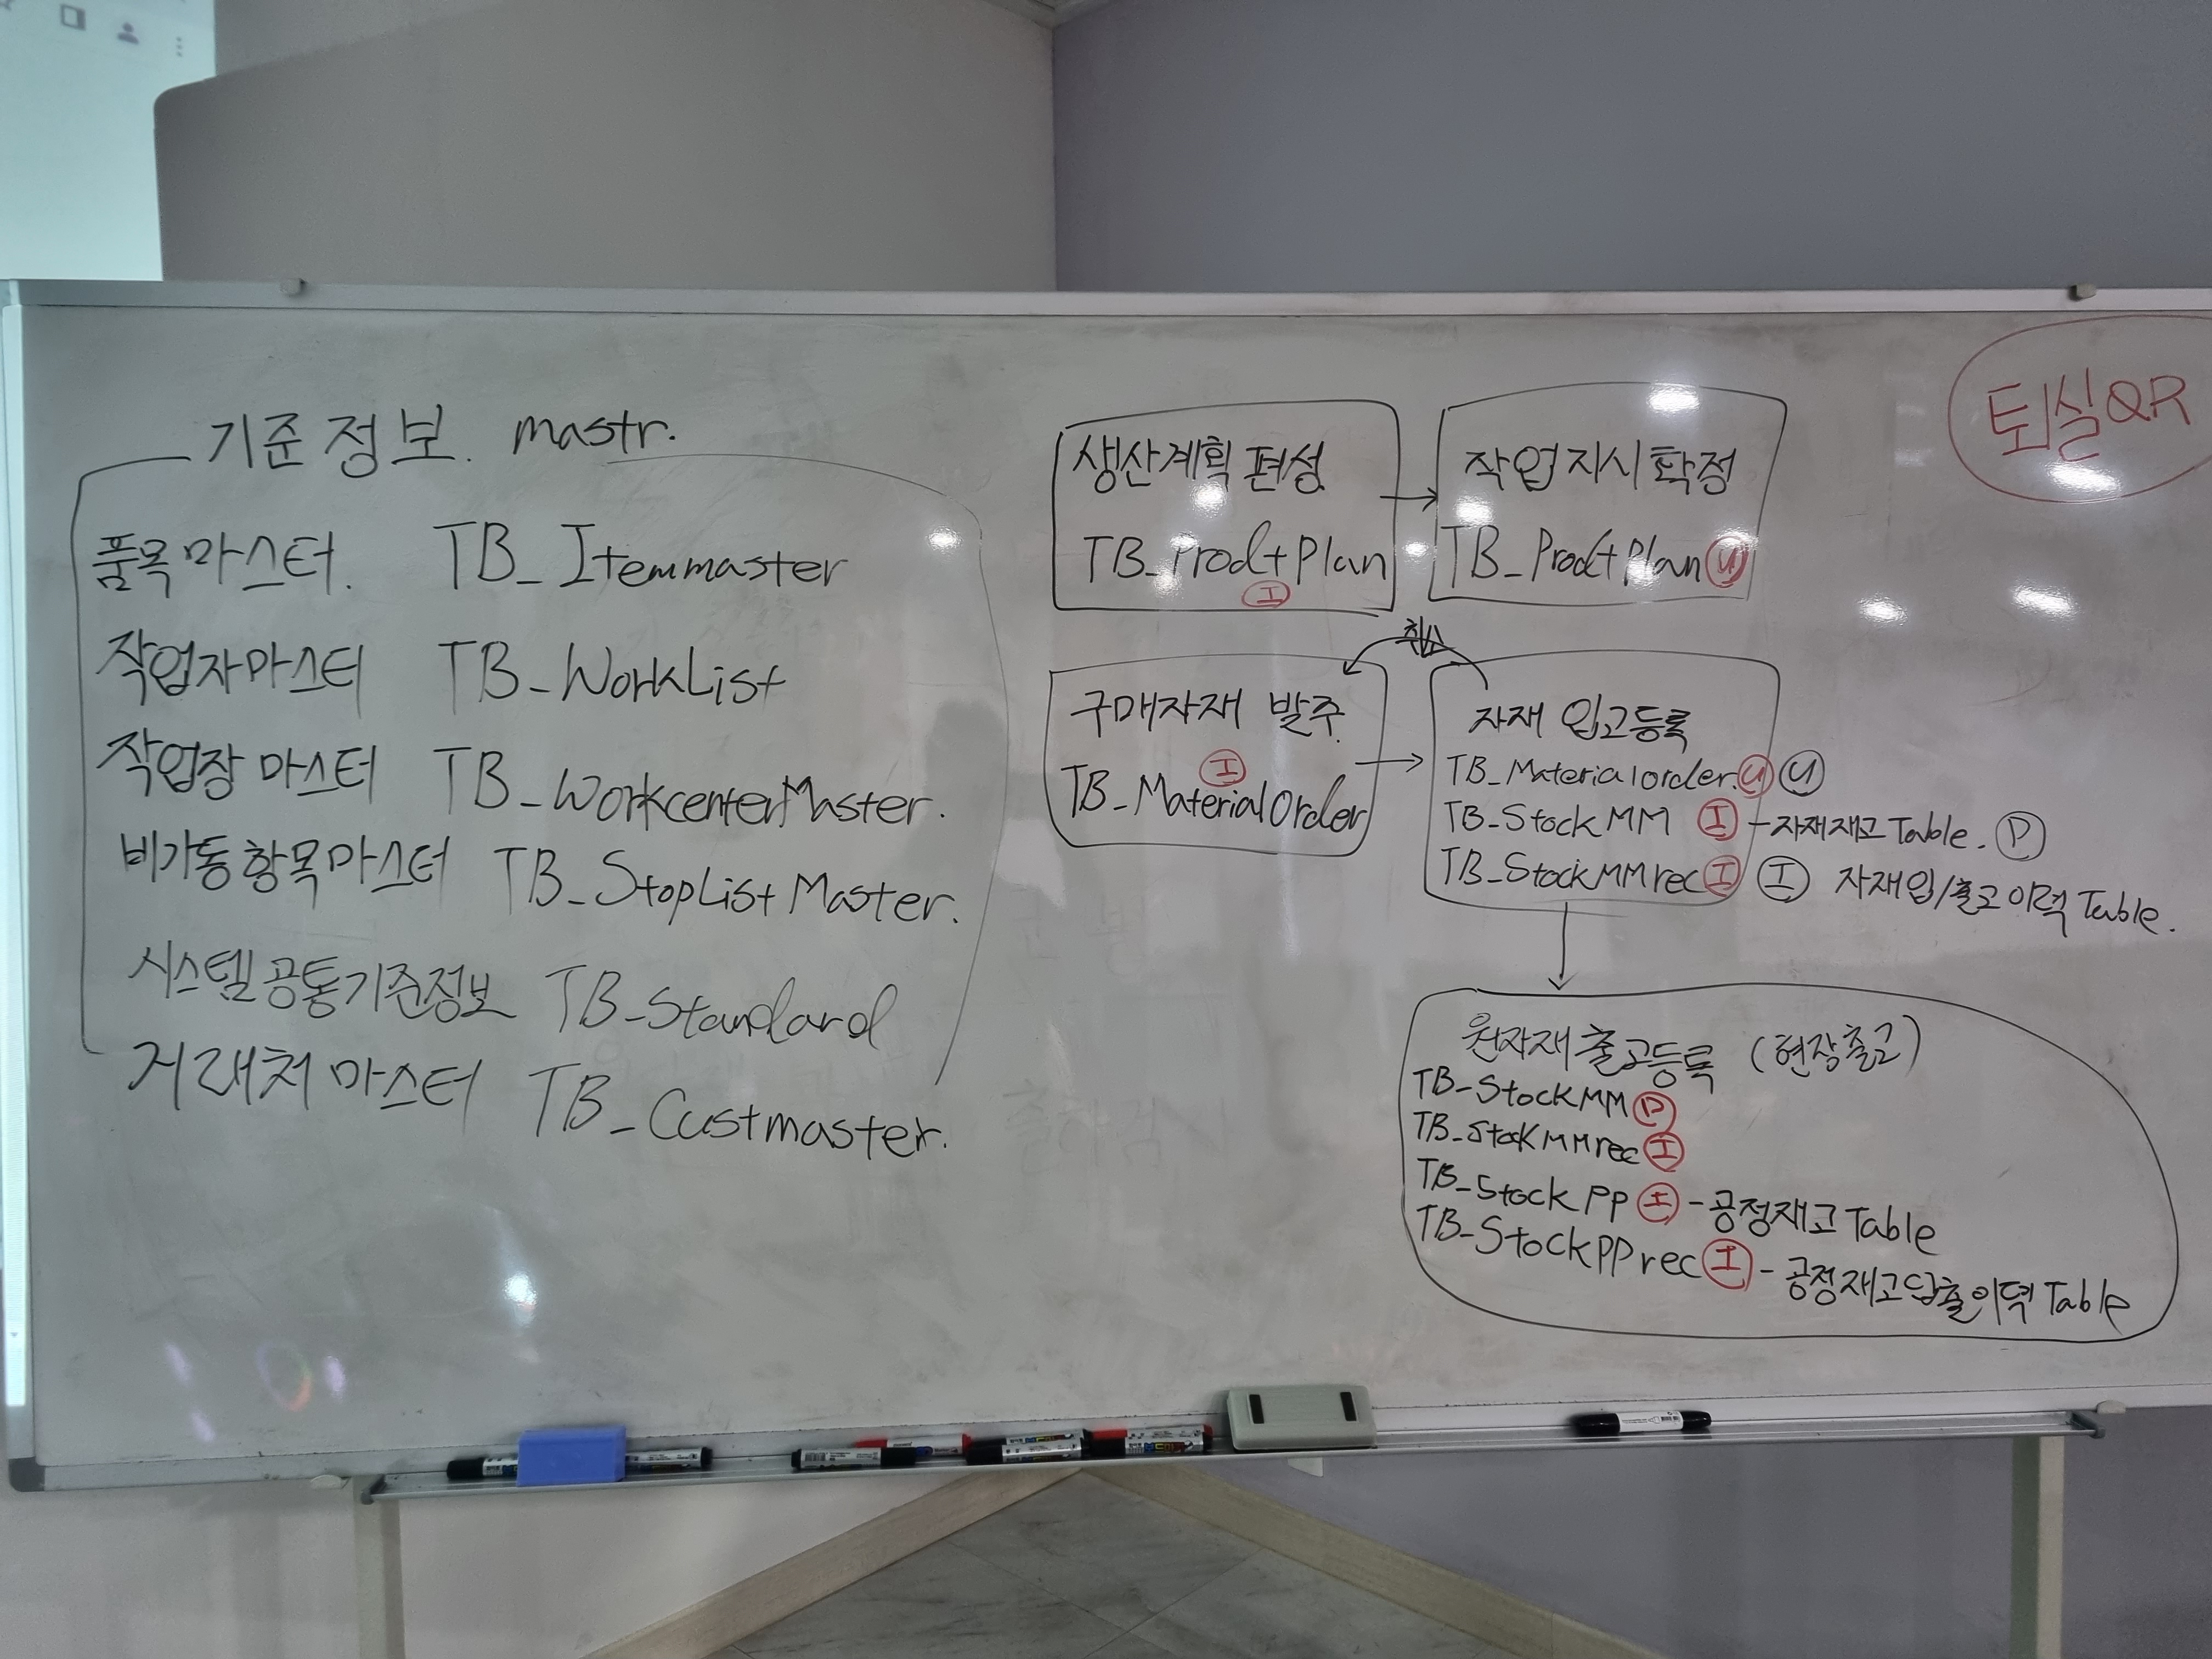 기준정보. mastr.
품목마스터. TB_Itemmaster
작업자마스터 TB_WorkList
작업장 마스터 TB_WorkcenterMaster.
비가동항목마스터 TB_StopList Master.
시스템공통기준정보 TB_Standard
거래처 마스터 TB_Custmaster.
생산계획 편성
TB_ProdtPlan
I
작업지시확정
TB_ProdtPlan U
퇴실QR
취소
구매자재 발주.
I
TB_MaterialOrder
자재 입고등록
TB_Materialorder. U U
TB_StockMM I - 자재재고 Table. D
TB_StockMMrec I I 자재입/출고이력 Table.
원자재출고등록 (현장출고)
TB_StockMM D
TB_StockMMrec I
TB_StockPP I - 공정재고 Table
TB_StockPPrec I - 공정재고입출이력 Table